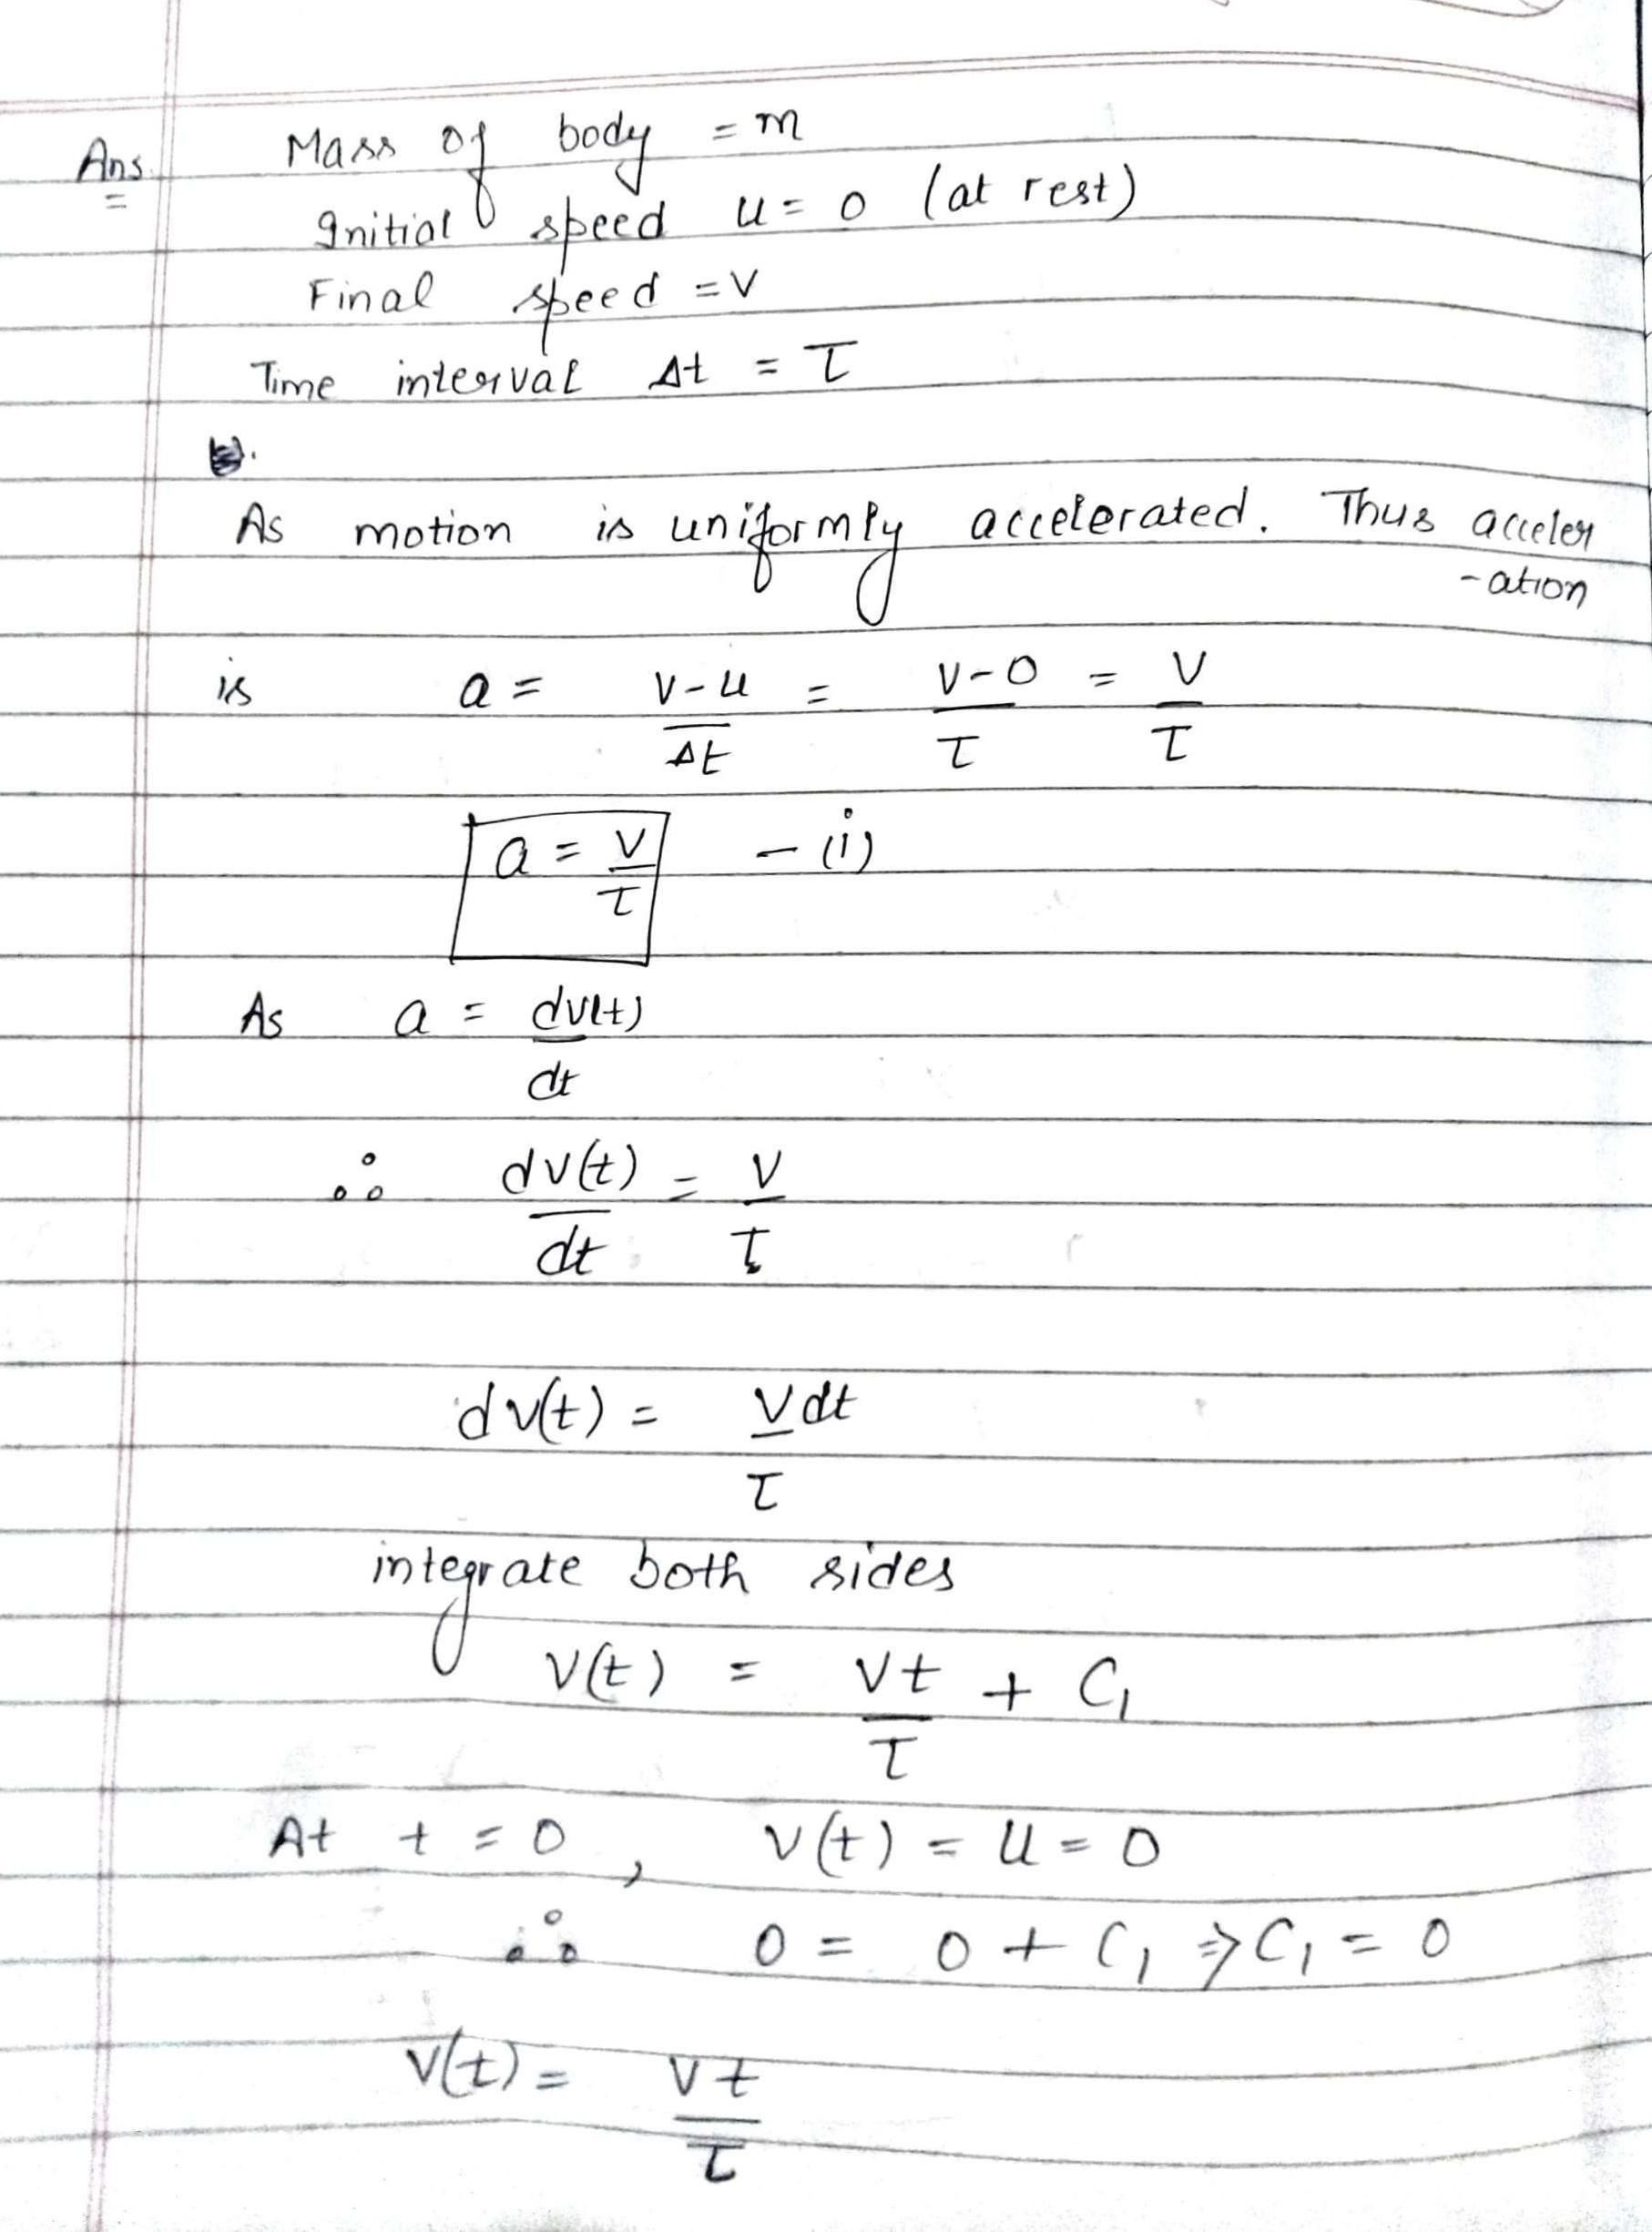 Ans Mass of body = m
Initial speed u = 0 (at rest)
Final speed = v
Time interval Δt = τ
As motion is uniformly accelerated. Thus acceler
-ation
is a = v-u = v-0 = v
Δt τ τ
a = v - (i)
τ
As a = dv(t)
dt
∴ dv(t) = v
dt τ
dv(t) = v dt
τ
integrate both sides
v(t) = vt + C₁
τ
At t = 0, v(t) = u = 0
∴ 0 = 0 + C₁ ⇒ C₁ = 0
v(t) = vt
τ